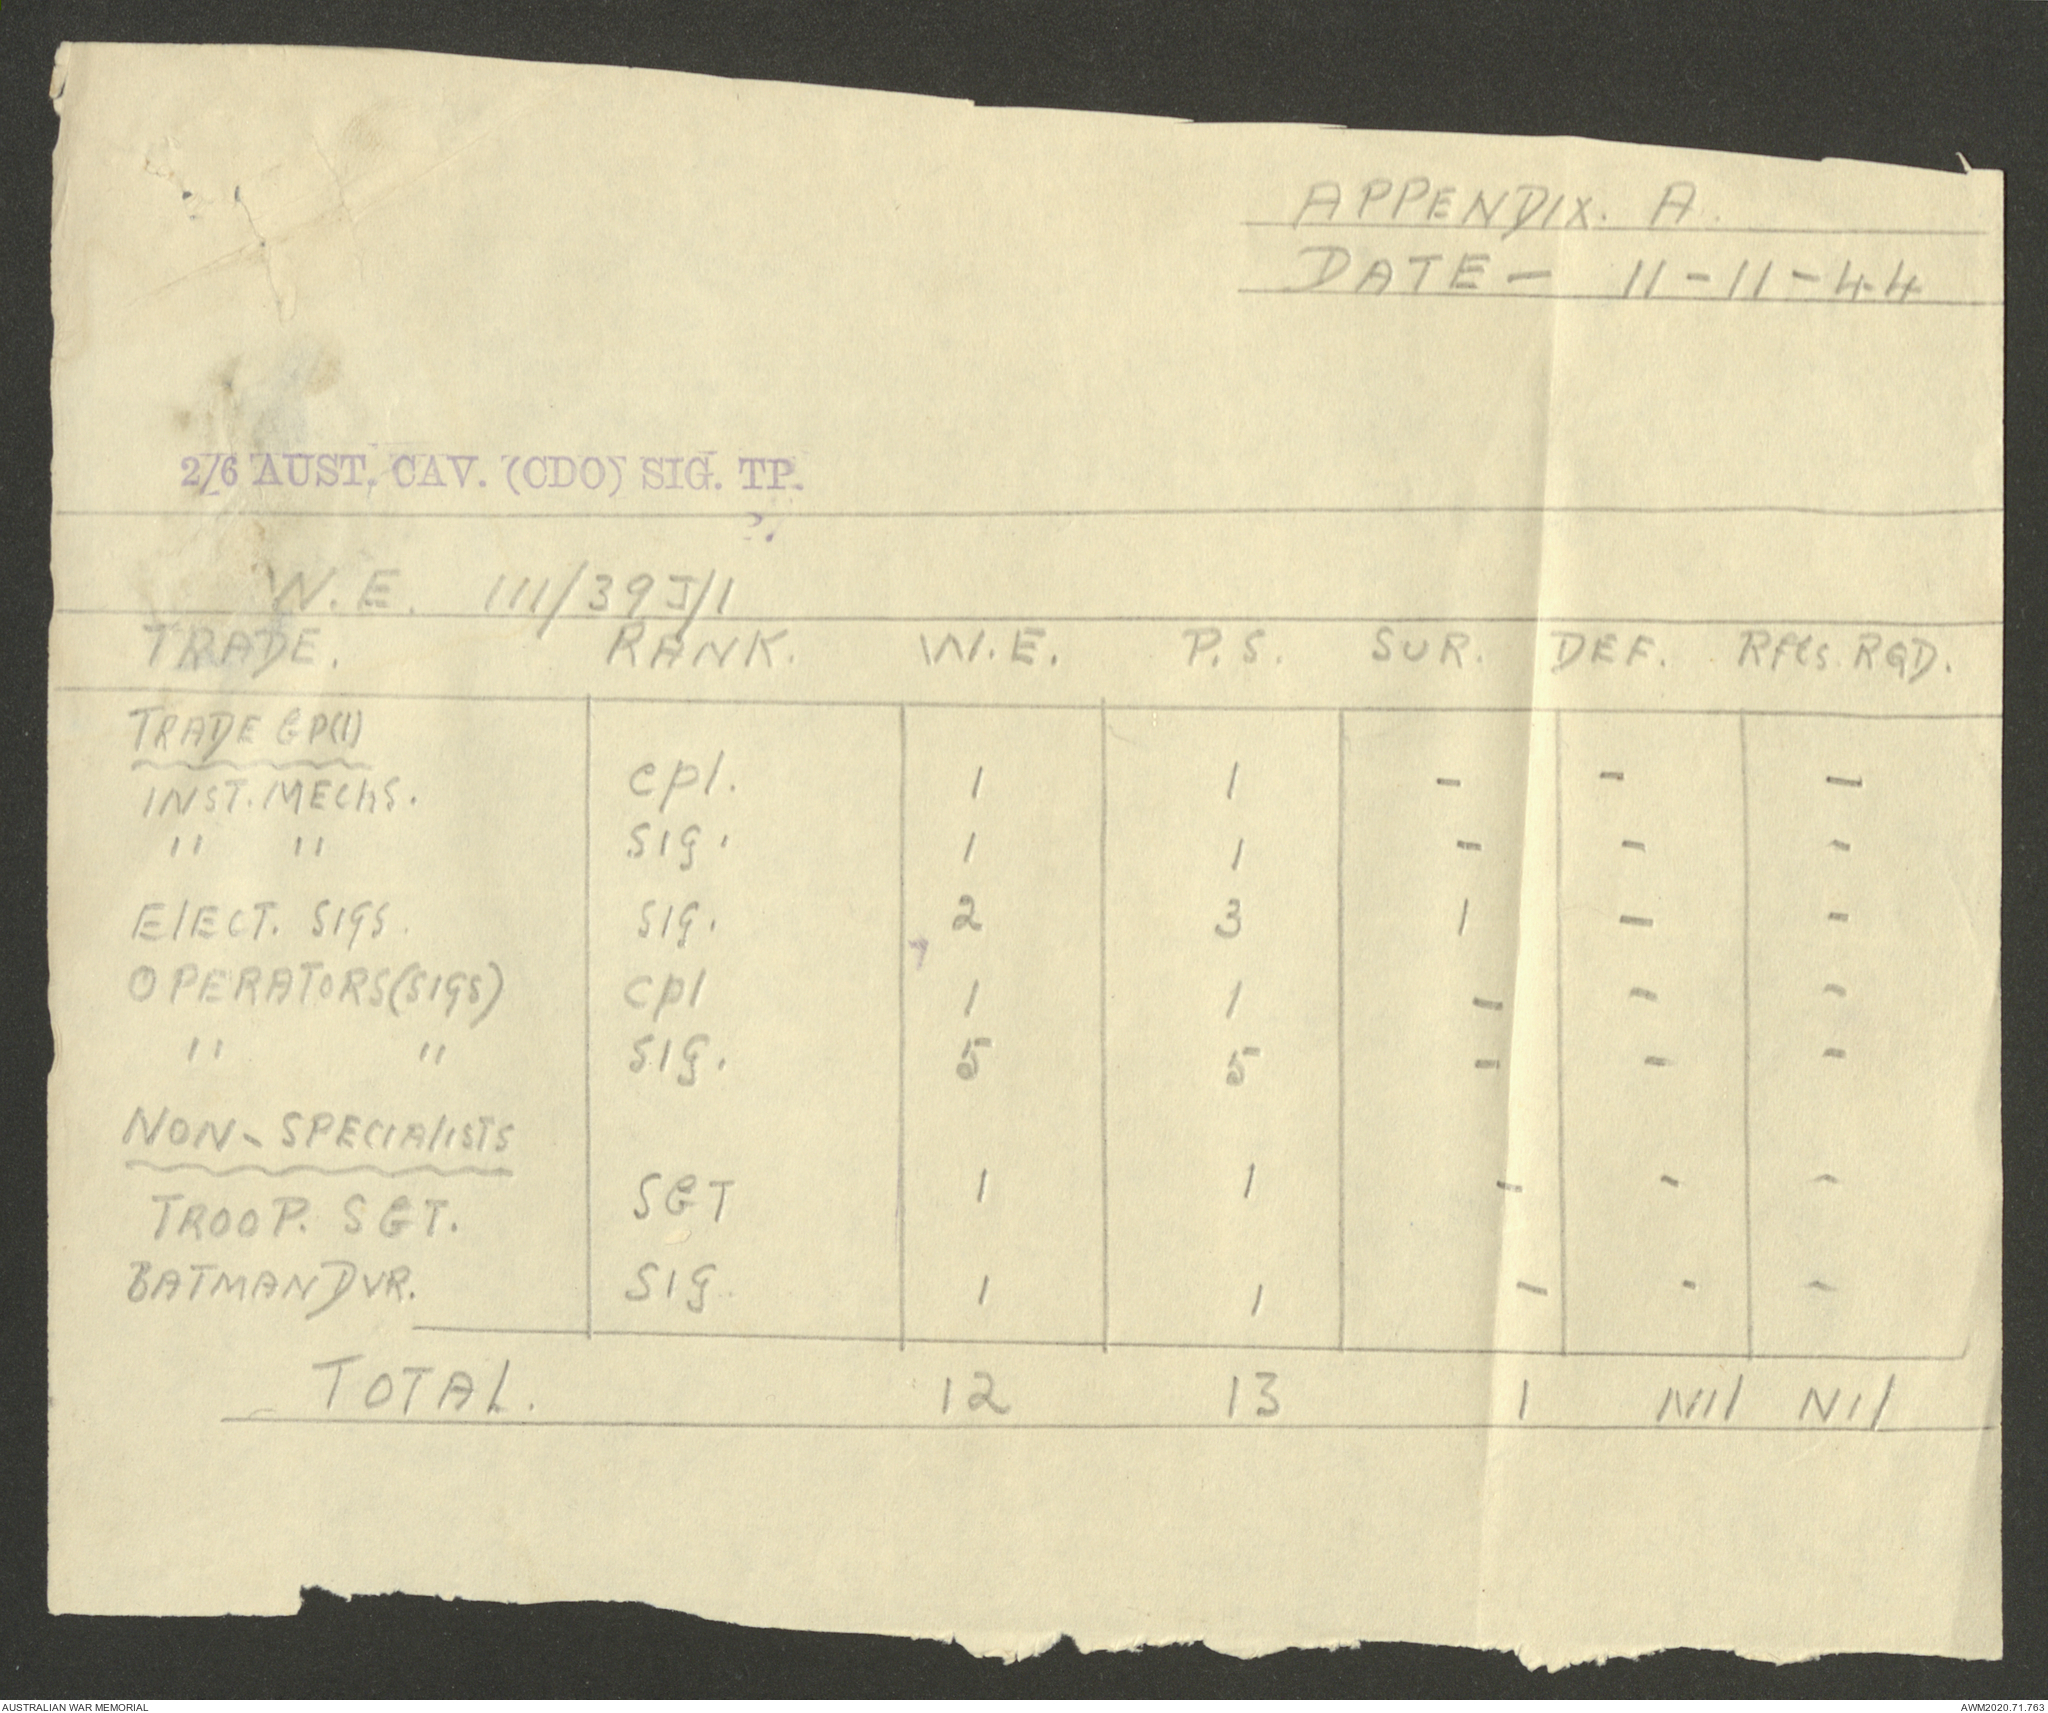 APPENDIX. A.
DATE - 11-11-44
2/6 AUST. CAV. (CDO) SIG. TP.
W.E. 111/39J/1
TRADE. RANK. W.E. P.S. SUR. DEF. Rfts. RQD.
TRADE GP(1)
INST. MECHS. cpl. 1 1 - - -
" " SIG. 1 1 - - -
ELECT. SIGS. SIG. 2 3 1 - -
OPERATORS(SIGS) cpl 1 1 - - -
" " SIG. 5 5 - - -
NON-SPECIALISTS
TROOP. SGT. SGT 1 1 - - -
BATMAN DVR. SIG. 1 1 - - -
TOTAL. 12 13 1 Nil Nil
AUSTRALIAN WAR MEMORIAL AWM2020.71.763